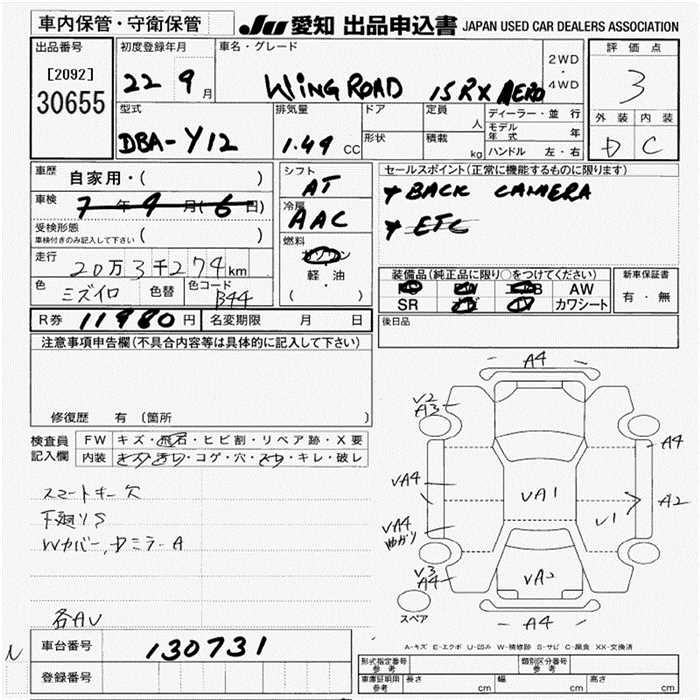 車内保管・守衛保管
JU 愛知 出品申込書 JAPAN USED CAR DEALERS ASSOCIATION
出品番号
[2092]
30655
初度登録年月
22 9月
車名・グレード
WINGROAD 15RX AERO
2WD
・
4WD
評価点
3
外装 内装
D C
型式
DBA-Y12
排気量
1.49 CC
ドア
形状
定員
人
積載
kg
ディーラー・並行
モデル年式 年
ハンドル 左・右
車歴 自家用・( )
車検 7年9月(6日)
受検形態
車検付きのみ記入して下さい ( )
走行
20万3千274km
色 ミズイロ 色替 色コード B44
シフト
AT
冷房
AAC
燃料
ガソリン
軽・油
( ・ )
セールスポイント(正常に機能するものに限ります)
* BACK CAMERA
* ETC
装備品(純正品に限り○をつけてください)
AW
SR カワシート
新車保証書
有・無
後日品
R券 11980円 名変期限 月 日
注意事項申告欄(不具合内容等は具体的に記入して下さい)
修復歴 有(箇所 )
検査員記入欄
FW キズ・飛石・ヒビ割・リペア跡・X要
内装 キズ・汚レ・コゲ・穴・スレ・キレ・破レ
スマートキー欠
下廻りS
Wカバー,Dミラー A
各AU
車台番号 130731
登録番号
A4
V2
A3
A4
VA4
VA1
V1
A2
VA4
ゆがり
V3
A4
スペア
A4
A-キズ E-エクボ U-凹み W-補修跡 S-サビ C-腐食 XX-交換済
型式指定番号
参考
類別区分番号
参考
車庫証明用
参考
長さ cm 幅 cm 高さ cm